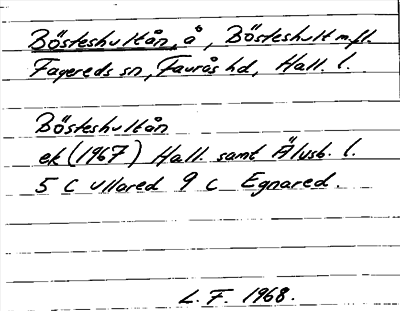 Bösteshultån, å, Bösteshult m.fl.
Fagereds sn, Faurås hd, Hall. l.
Bösteshultån
ek (1967) Hall. samt Älvsb. l.
5 C Ullared 9 C Egnared.
L. F. 1968.